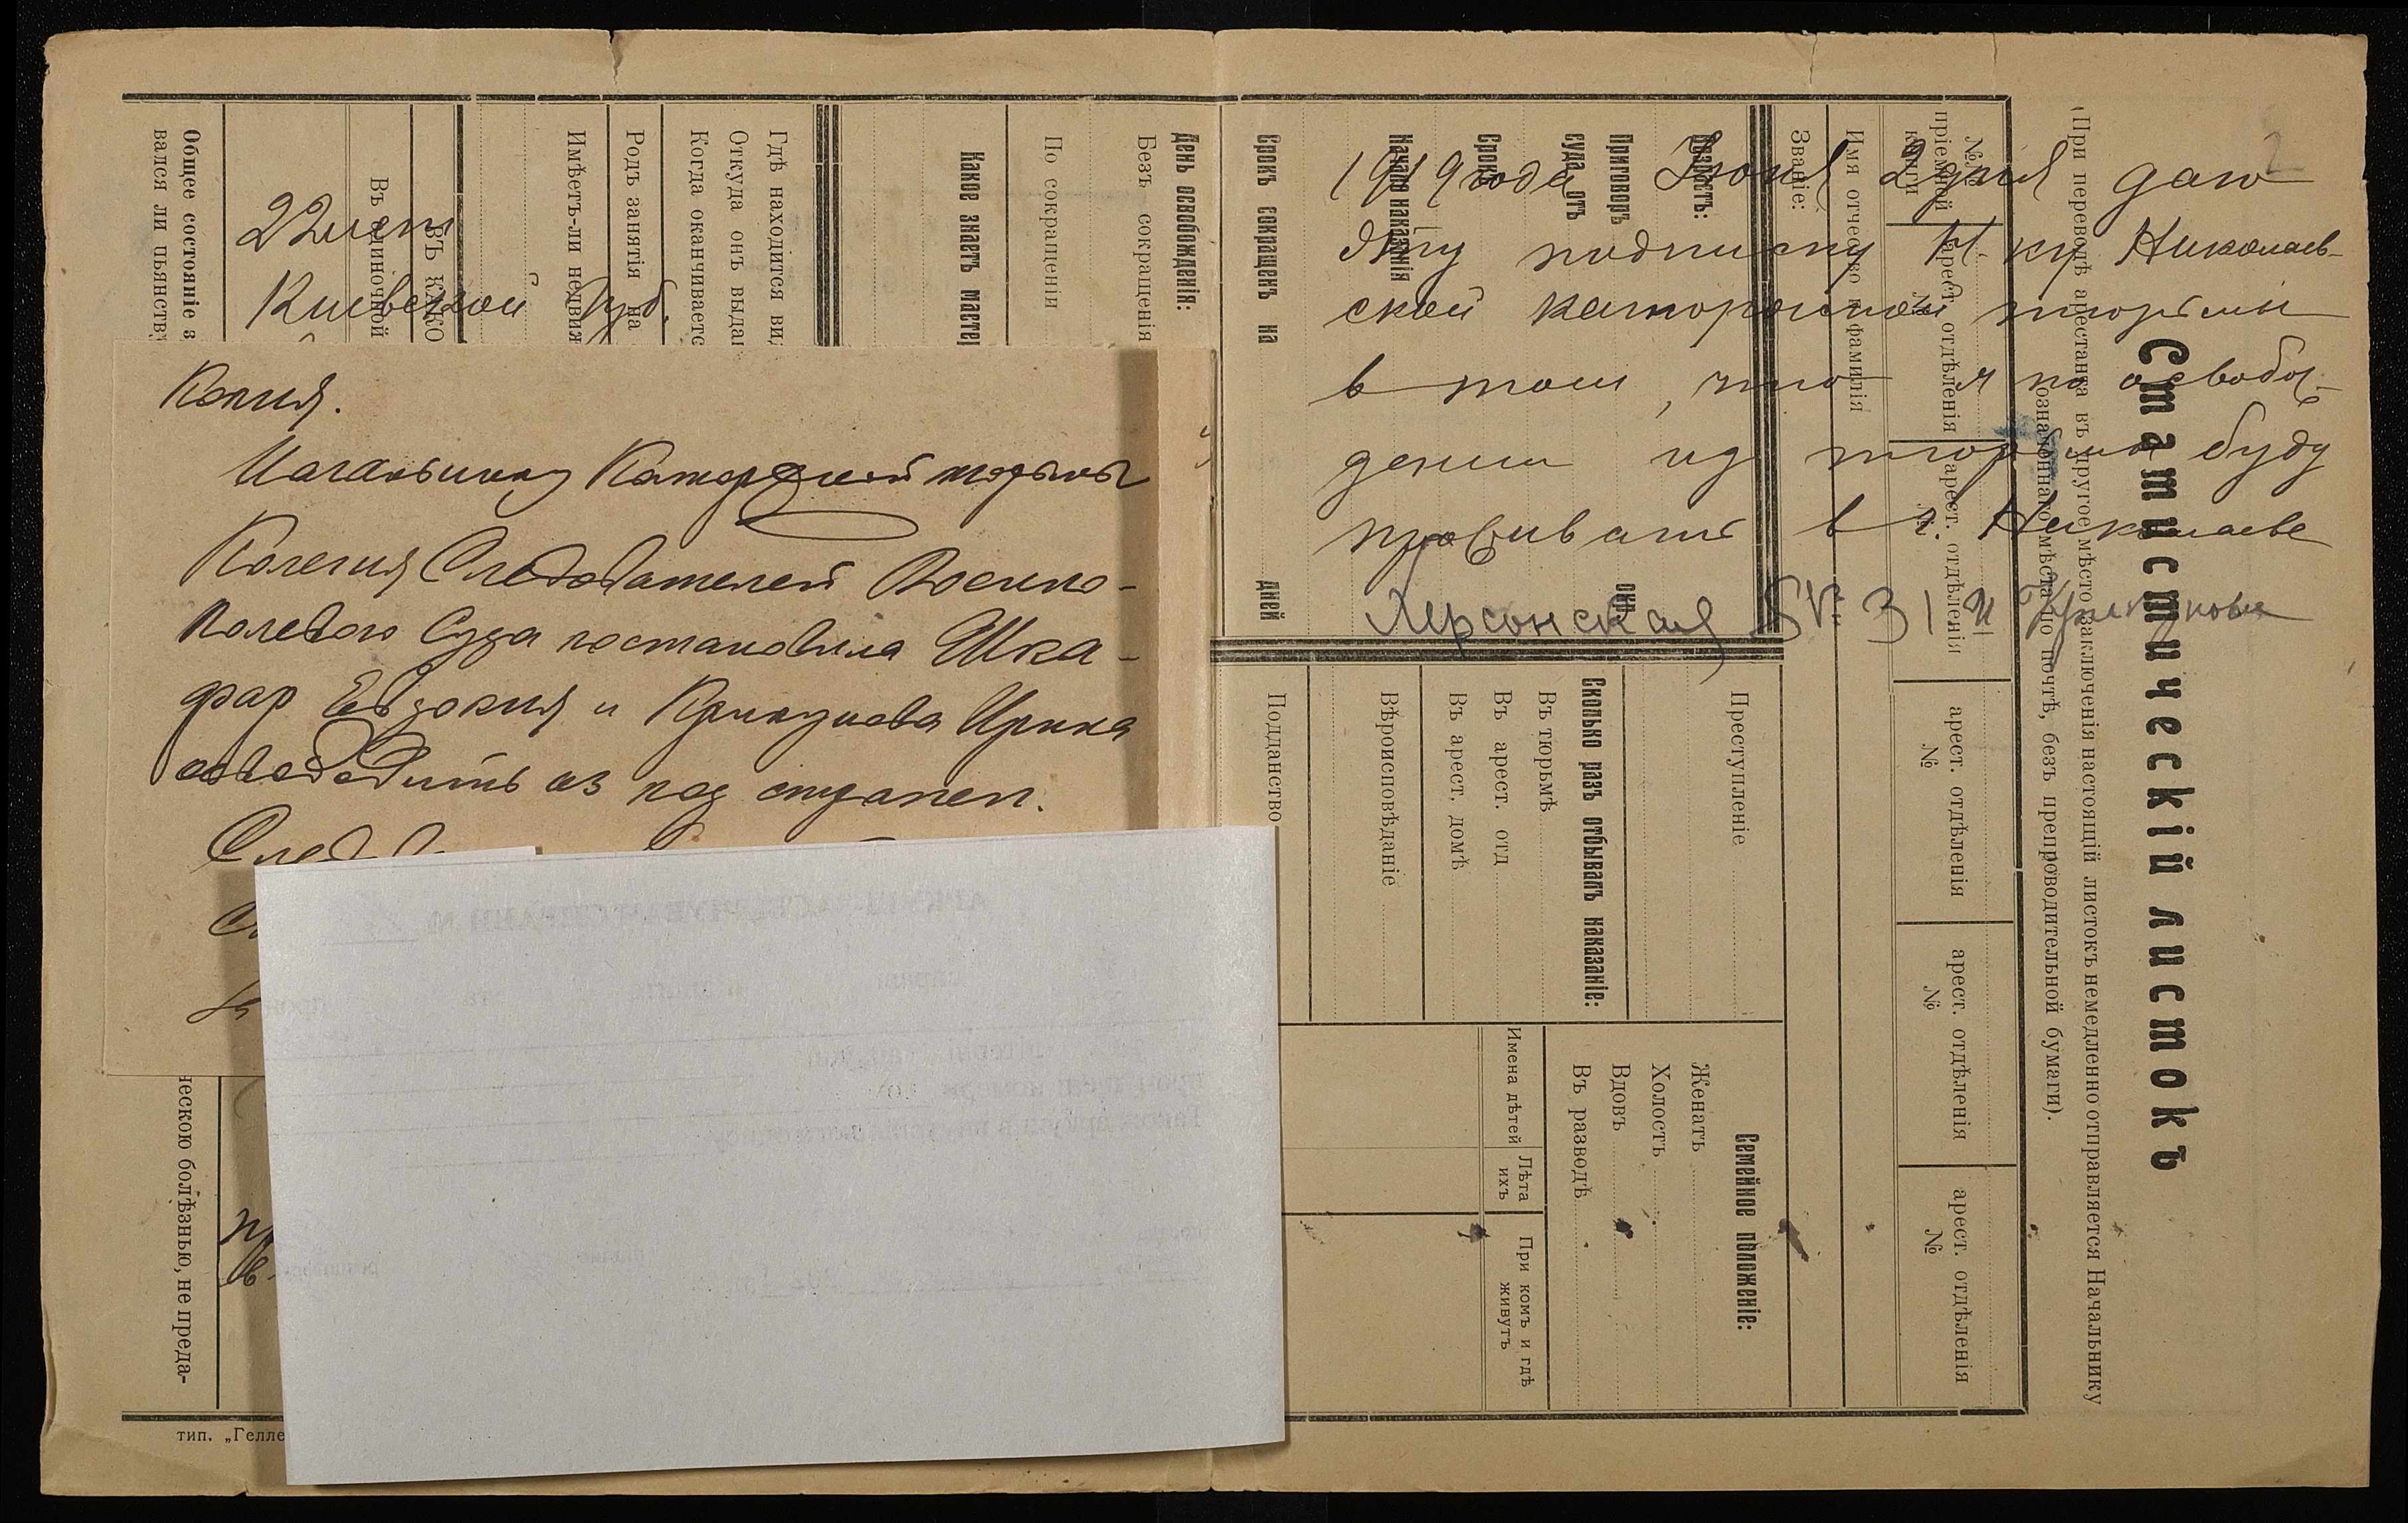 22 лет
Киевской губ.
Копия.
Начальнику Каторжной тюрьмы
Колегия Следователей Военно-
Полевого Суда постановила Шка-
фар Евдокия и Крикунова Ирина
освободить из под стражи.
ческою болѣзнью, не преда-
тип. „Гелле
Общее состояніе з
вался ли пьянству
Въ одиночной
Имѣетъ-ли недвиж
Родъ занятія на
Когда оканчиваетс
Откуда онъ выдан
Гдѣ находится вид
Какое знаетъ мастер
По сокращеніи
Безъ сокращенія
День освобожденія:
2
1919 года Июня 2 дня даю
эту подписку Н-ку Николаев-
ской каторжной тюрьмы
в том, что я по освобож-
дении из тюрьмы буду
проживать в г. Николаеве
Херсонская № 31 И Крикунова
Статистическій листокъ
(При переводѣ арестанта въ другое мѣсто заключенія настоящій листокъ немедленно отправляется Начальнику
означеннаго мѣста по почтѣ, безъ препроводительной бумаги).
№ по
пріемной
книги
арест. отдѣленія
№
арест. отдѣленія
№
арест. отдѣленія
№
арест. отдѣленія
№
арест. отдѣленія
№
Имя отчество и фамилія
Званіе:
Возрастъ:
Приговоръ
суда отъ
окр.
Срокъ
Начало наказанія
Срокъ сокращенъ на дней
Преступленіе
Сколько разъ отбывалъ наказаніе:
Въ тюрьмѣ
Въ арест. отд
Въ арест. домѣ
Вѣроисповѣданіе
Подданство
Семейное положеніе:
Женатъ
Холостъ
Вдовъ
Въ разводѣ
Имена дѣтей
Лѣта
ихъ
При комъ и гдѣ
живутъ